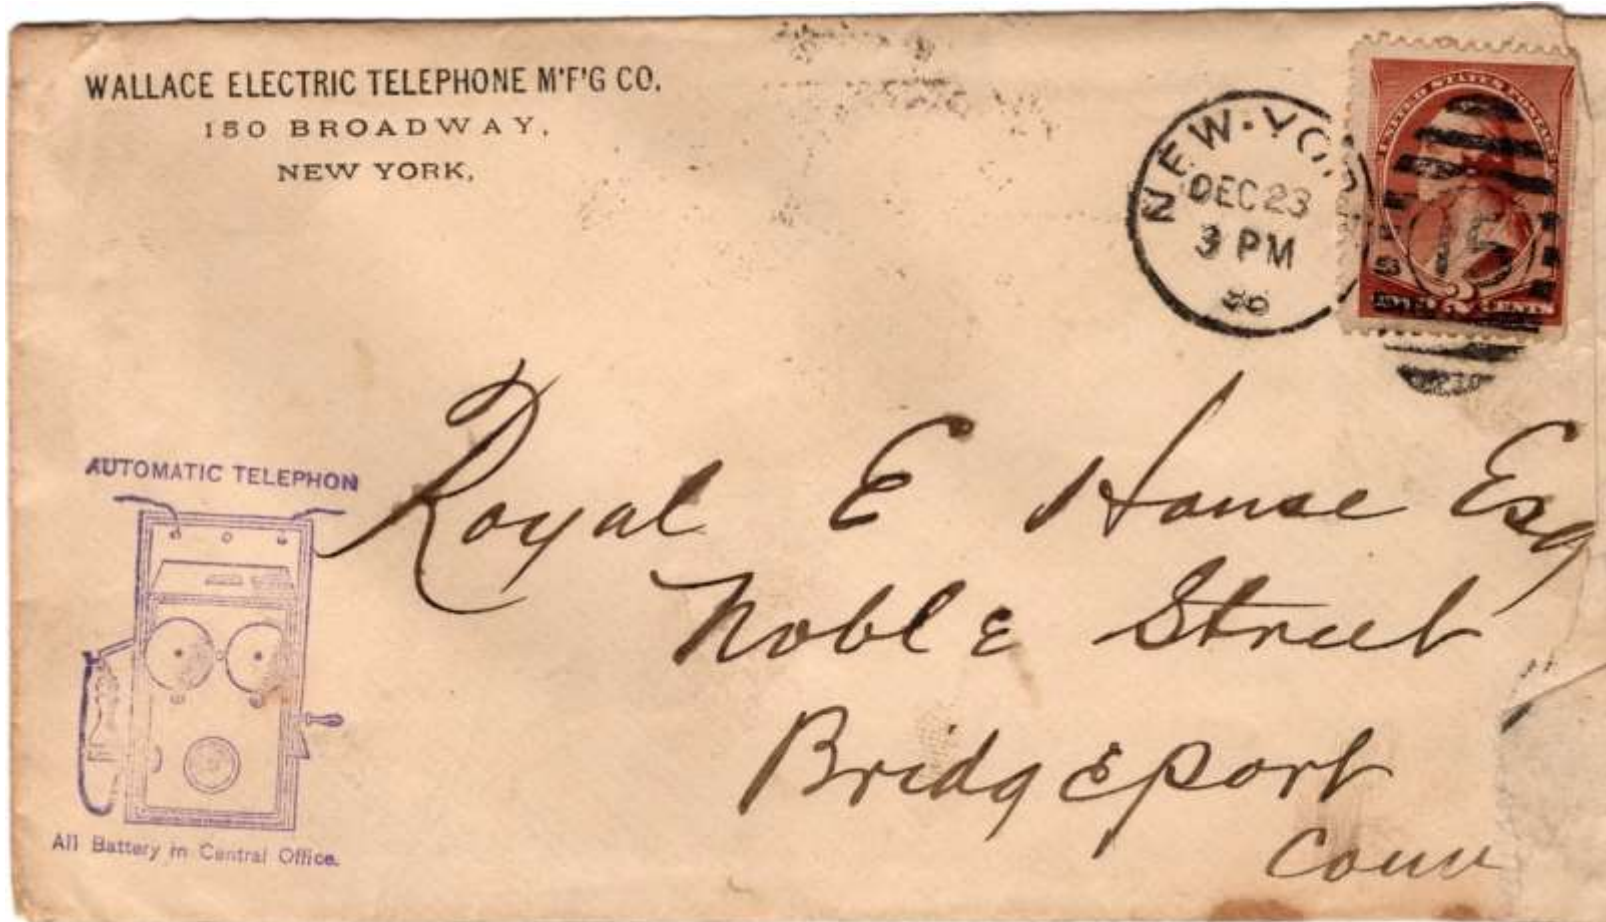 WALLACE ELECTRIC TELEPHONE M'F'G CO.
150 BROADWAY,
NEW YORK,
NEW YOR
DEC 23
3 PM
86
UNITED STATES POSTAGE
2 CENTS
AUTOMATIC TELEPHON
All Battery in Central Office.
Royal E House Esq
Noble Street
Bridgeport
Conn